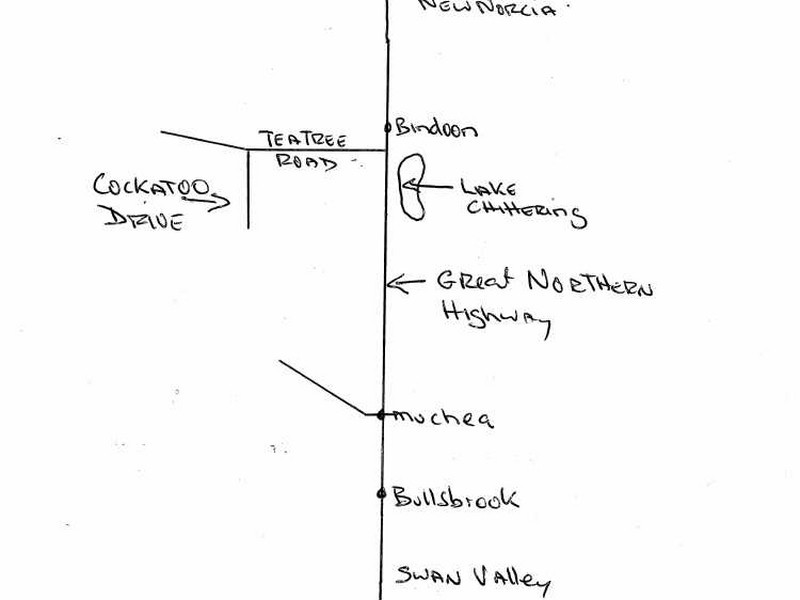 NEWNORCIA.
Bindoon
TEATREE
ROAD
COCKATOO
DRIVE
LAKE
CHITTERING
GREAT NORTHERN
HIGHWAY
muchea
Bullsbrook
SWAN VALLEY